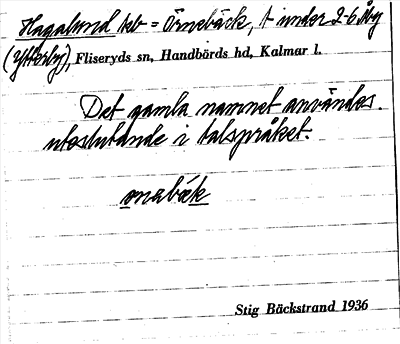 Hagalund heb = Örnebäck, t under 2-6 Åby
(Ytterby), Fliseryds sn, Handbörds hd, Kalmar l.
Det gamla namnet användes
uteslutande i talspråket.
ọnabæk
Stig Bäckstrand 1936